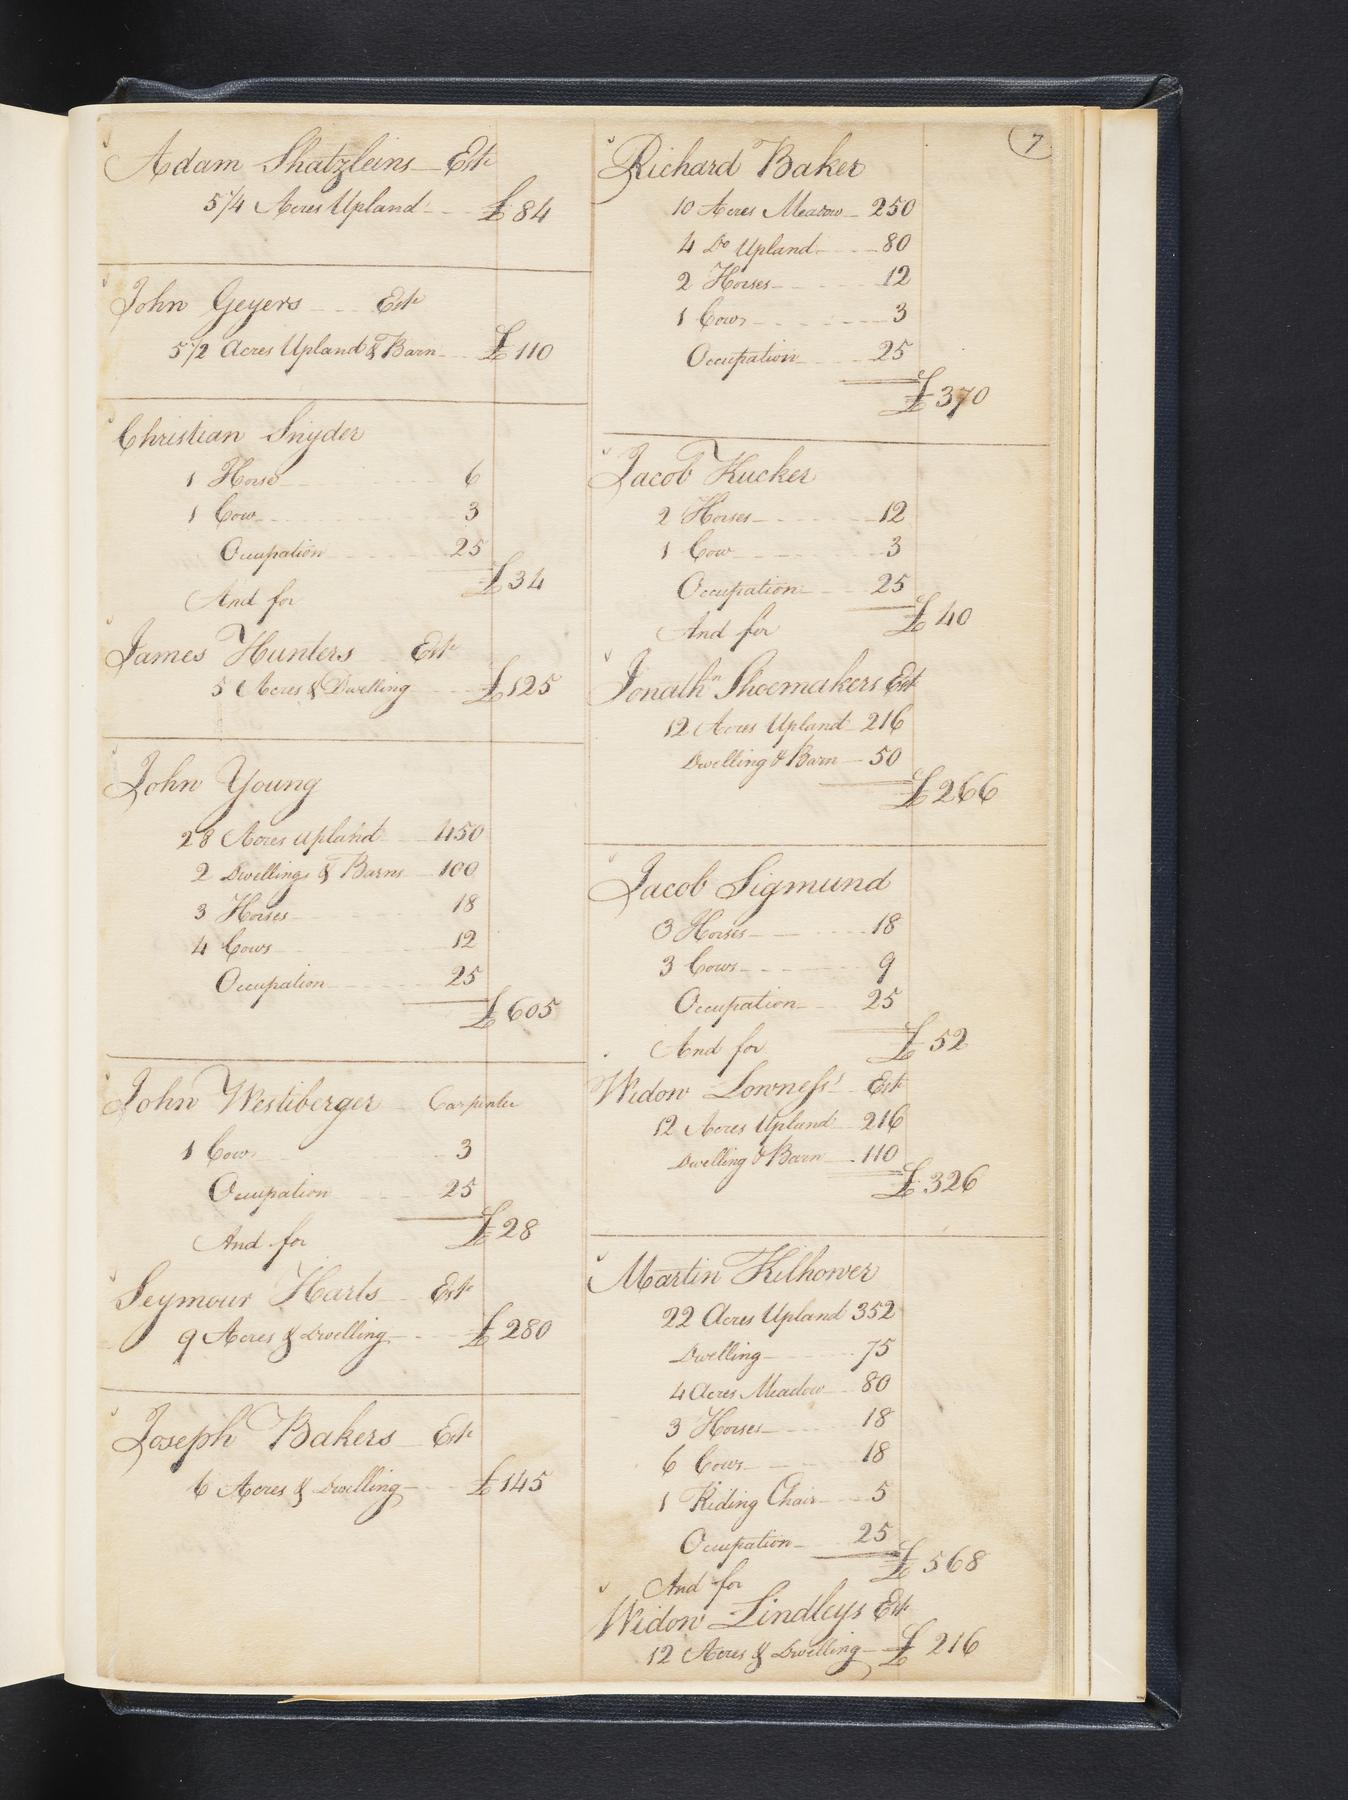 7
Adam Shatzleins Est
5 1/4 Acres Upland £84
John Geyers Est
5 1/2 Acres Upland & Barn £110
Christian Snyder
1 Horse 6
1 Cow 3
Occupation 25
£34
And for
James Hunters Est
5 Acres & Dwelling £125
John Young
28 Acres upland 450
2 Dwellings & Barns 100
3 Horses 18
4 Cows 12
Occupation 25
£605
John Westiberger Carpenter
1 Cow 3
Occupation 25
£28
And for
Seymour Harts Est
9 Acres & Dwelling £280
Joseph Bakers Est
6 Acres & Dwelling £145
Richard Baker
10 Acres Meadow 250
4 Do Upland 80
2 Horses 12
1 Cow 3
Occupation 25
£370
Jacob Kucker
2 Horses 12
1 Cow 3
Occupation 25
£40
And for
Jonathn Shoemakers Est
12 Acres Upland 216
Dwelling & Barn 50
£266
Jacob Sigmund
3 Horses 18
3 Cows 9
Occupation 25
£52
And for
Widow Lowness' Est
12 Acres Upland 216
Dwelling & Barn 110
£326
Martin Kilhower
22 Acres Upland 352
Dwelling 75
4 Acres Meadow 80
3 Horses 18
6 Cows 18
1 Riding Chair 5
Occupation 25
£568
And for
Widow Lindleys Est
12 Acres & Dwelling £216